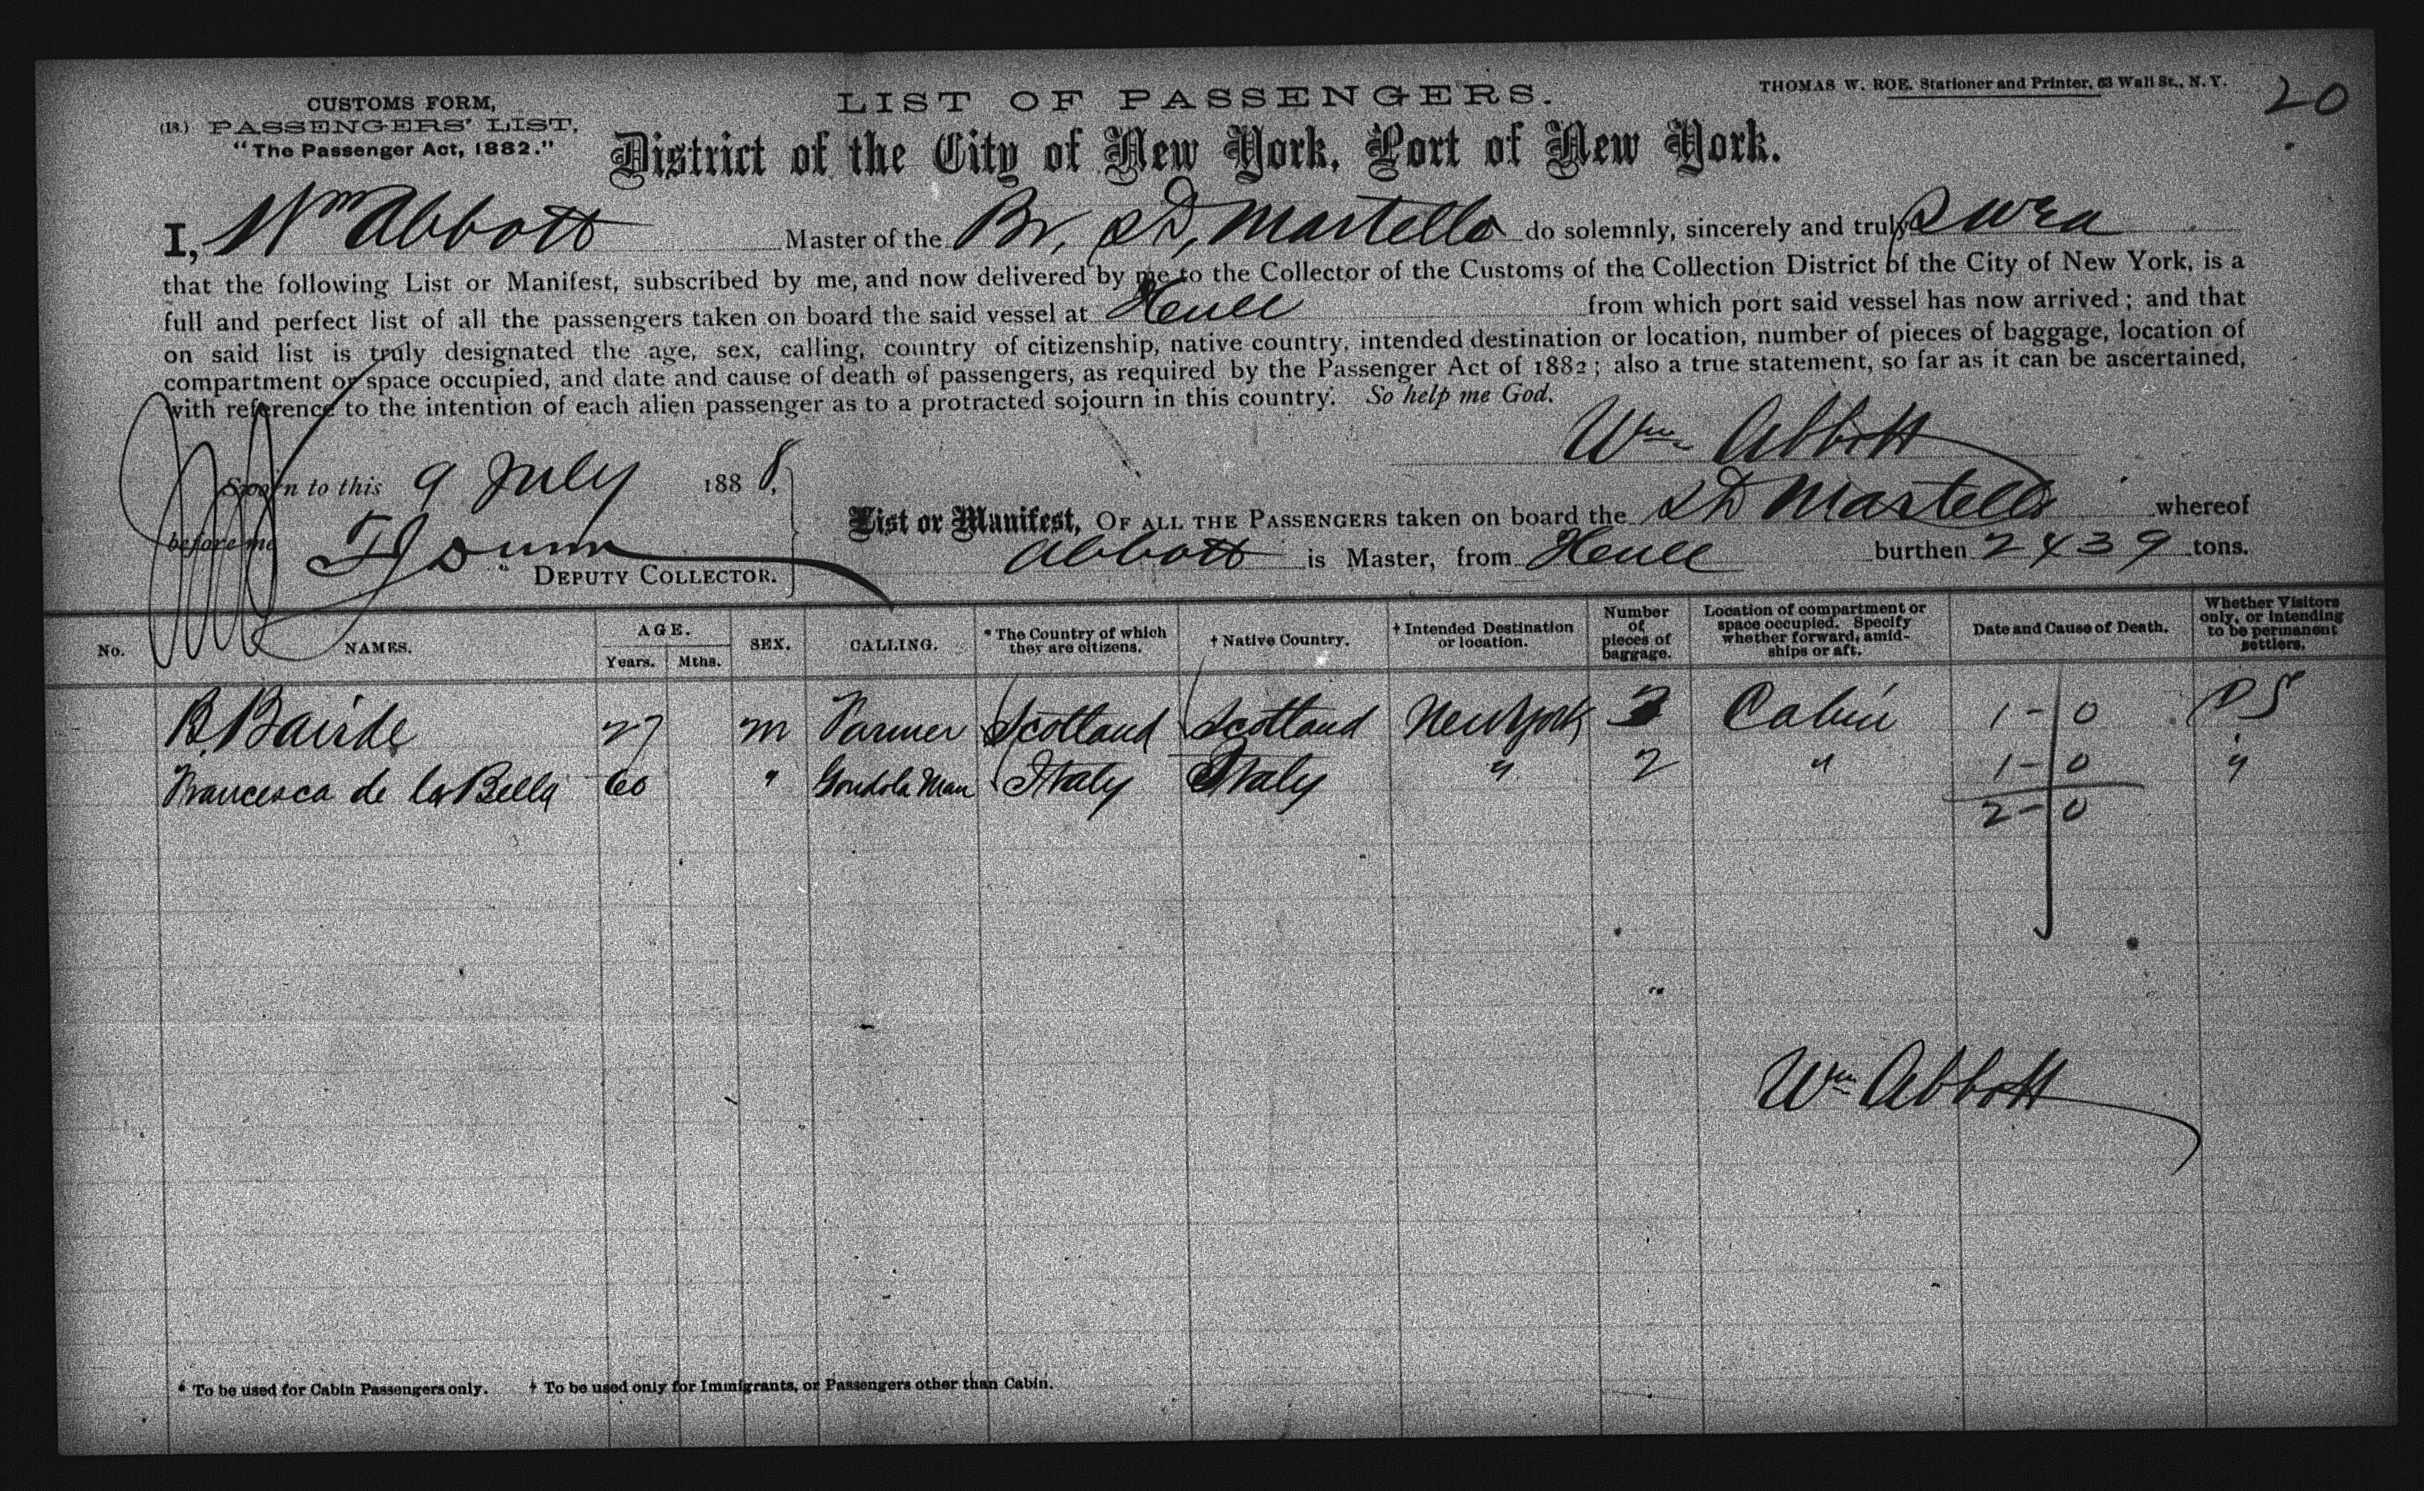 CUSTOMS FORM,
(18.) PASSENGERS' LIST,
"The Passenger Act, 1882."
LIST OF PASSENGERS.
THOMAS W. ROE, Stationer and Printer, 63 Wall St., N. Y.
20
District of the City of New York, Port of New York.
I, Wm Abbott Master of the Br. SS, Martello do solemnly, sincerely and truly swea
that the following List or Manifest, subscribed by me, and now delivered by me to the Collector of the Customs of the Collection District of the City of New York, is a
full and perfect list of all the passengers taken on board the said vessel at Hull from which port said vessel has now arrived; and that
on said list is truly designated the age, sex, calling, country of citizenship, native country, intended destination or location, number of pieces of baggage, location of
compartment or space occupied, and date and cause of death of passengers, as required by the Passenger Act of 1882; also a true statement, so far as it can be ascertained,
with reference to the intention of each alien passenger as to a protracted sojourn in this country. So help me God.
Wm Abbott
Sworn to this 9 July 1888,
before me
DEPUTY COLLECTOR.
List or Manifest, OF ALL THE PASSENGERS taken on board the SS Martello whereof
Abbott is Master, from Hull burthen 2439 tons.
No. NAMES. AGE. Years. Mths. SEX. CALLING. * The Country of which they are citizens. † Native Country. † Intended Destination or location. Number of pieces of baggage. Location of compartment or space occupied. Specify whether forward, amidships or aft. Date and Cause of Death. Whether Visitors only, or intending to be permanent settlers.
B. Bairde 27 m Farmer Scotland Scotland New York 3 Cabin 1-0 PS
Francesca de la Bella 60 " Gondola Man Italy Italy " 2 " 1-0 "
2-0
Wm Abbott
* To be used for Cabin Passengers only. † To be used only for Immigrants, or Passengers other than Cabin.